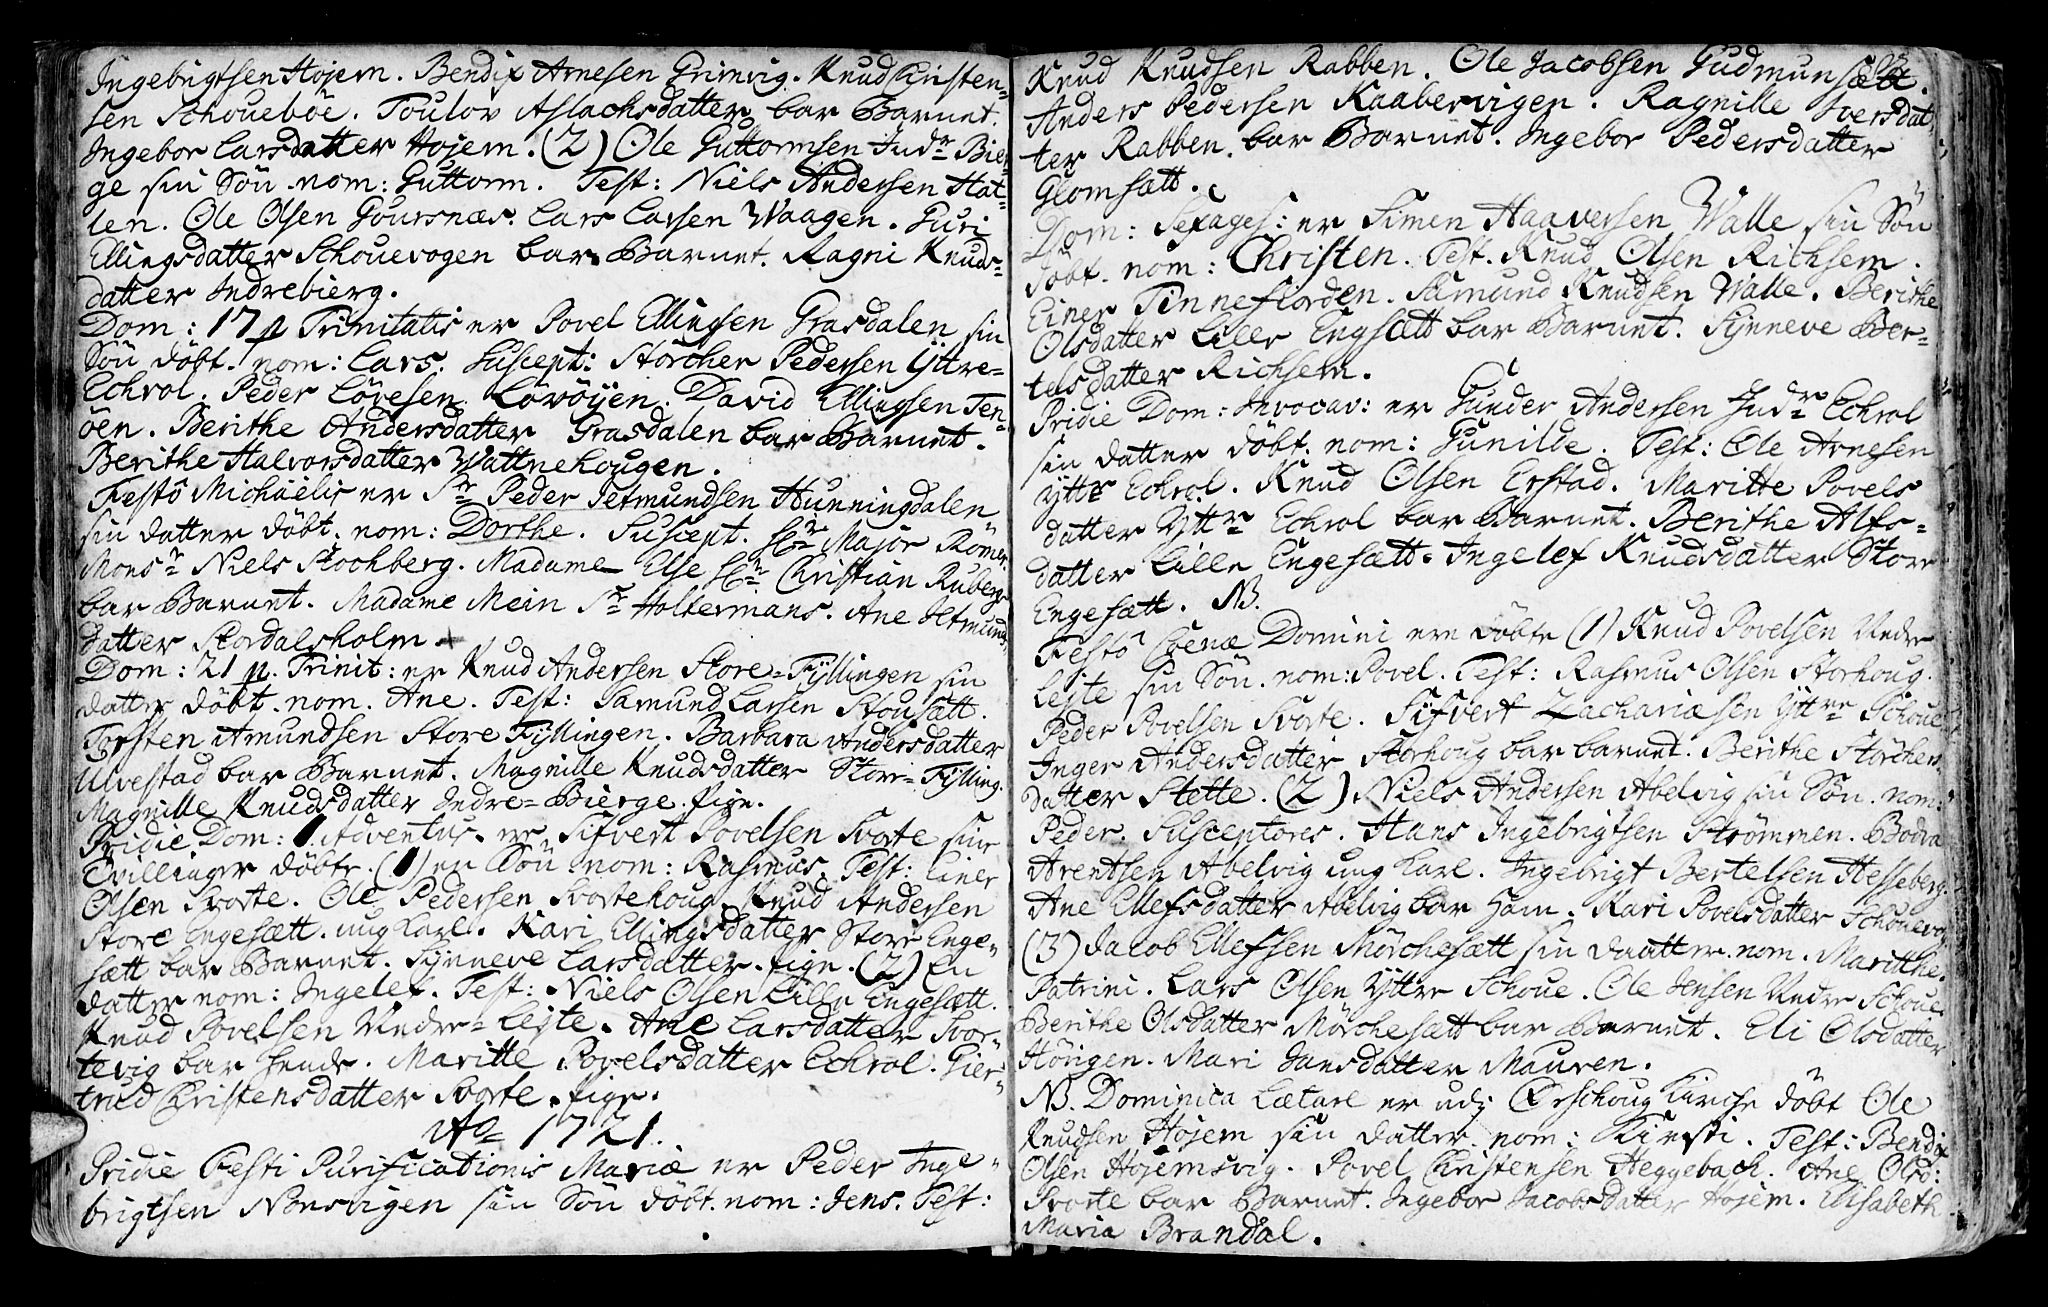 Ingebrigtsen Højem. Bendix Arnesen Grimvig. Knud Christen-
sen Schoueböe. Toulov Aslachsdatter bar Barnet.
Ingebor Larsdatter Højem. (2) Ole Guttormsen Indr Bier
ge sin Sön nom: Guttorm. Test: Niels Andersen Hat-
len. Ole Olsen Goursnæs. Lars Larsen Waagen. Guri
Ellingsdatter Schouevogen bar Barnet. Ragni Knuds-
datter Indrebierg.
Dom: 17 p Trinitatis er Povel Ellingsen Grasdalen sin
Sön döbt. nom: Lars. Suscept: Storcher Pedersen Yttre-
Echrol. Peder Lövesen Lövöyen. David Ellingsen Ten-
öen. Berithe Andersdatter Grasdalen bar Barnet.
Berithe Halvorsdatter Wattnehougen.
Festo Michaelis er Sr Peder Jetmundsen Hunningdalen
sin datter döbt. nom: Dorthe. Suscept. Hr Major Römer
Monsr Niels Stochberg. Madame Else Hr Christian Rubergs
bar Barnet. Madame Mein Sr Holtermans. Ane Jetmunds
datter Stordalsholm
Dom: 21 p. Trinit: er Knud Andersen Store-Fyllingen sin
datter döbt. nom. Ane. Test: Samund Larsen Stousætt.
Torsten Amundsen Store Fyllingen. Barbara Andersdatter
Ulvestad bar Barnet. Magnille Knudsdatter Store-Fylling.
Magnille Knudsdatter Indre-Bierge. pige.
Pridie Dom: 1. Adventus er Sifvert Povelsen Svorte sine
Tvillinger döbte. (1) en Sön nom: Rasmus. Test: Einer
Olsen Svorte. Ole Pedersen Svortehoug. Knud Andersen
Store Engesætt. ung karl. Kari Ellingsdatter Store Enge-
sætt bar Barnet. Synneve Larsdatter. pige. (2) En
datter nom: Ingelef. Test: Niels Olsen Lille Engesætt.
Knud Povelsen Nedre-Lejte. Ane Larsdatter Svor-
tevig bar hende. Maritte Povelsdatter Echrol. Gier-
trud Christensdatter Svorte. pige.
Ao 1721.
Pridie Festi Purificationis Mariæ er Peder Inge-
brigtsen Nonsvigen sin Sön döbt. nom: Jens. Test:
Knud Knudsen Rabben. Ole Jacobsen Gudmunsætt.
Anders Pedersen Kaabervigen. Ragnille Iversdat
ter Rabben bar Barnet. Ingebor Pedersdatter
Glomsætt.
Dom: Sexages: er Simen Haaversen Walle sin Sön
döbt. nom: Christen. Test. Knud Olsen Richsem.
Einer Tinnefiorden. Samund Knudsen Walle. Berithe
Olsdatter Lille Engsætt bar Barnet. Synneve Ber-
telsdatter Richsem.
Pridie Dom: Invocav: er Gunder Andersen Indr Echrol
sin datter döbt. nom: Gunilde. Test: Ole Arnesen
Yttr Echrol. Knud Olsen Erstad. Maritte Povels
datter Yttr Echrol bar Barnet. Berithe Alfs-
datter Lille Engesætt. Ingelef Knudsdatter Store
Engesætt. NB.
Festo Coenæ Domini ere döbte (1) Knud Povelsen Nedre
Lejte sin Sön. nom: Povel. Test: Rasmus Olsen Storhoug.
Peder Povelsen Svorte. Sifvert Zachariæsen Yttre Schoue
Inger Andersdatter Storhoug bar barnet. Berithe Storchers
datter Stette. (2) Niels Andersen Abelvig sin Sön. nom:
Peder. Susceptores. Hans Ingebrigtsen Strömmen. Bodva
Arentsen Abelvig ung karl. Ingebrigt Bertelsen Hesseberg.
Ane Ellefsdatter Abelvig bar ham. Kari Povelsdatter Schouevog
(3) Jacob Ellefsen Mörchesætt sin daatter. nom. Maritthe.
Patrini. Lars Olsen Yttre Schoue. Ole Jensen Nedre Schoue.
Berithe Olsdatter Mörchesætt bar Barnet. Eli Olsdatter
Hörigen. Mari Jansdatter Mauren.
NB. Dominica Lætare er udj Örschoug Kirche döbt Ole
Knudsen Højem sin datter. nom: Kirsti. Test: Bendix
Olsen Hojemsvig. Povel Christensen Heggebach. Ane Olsd:
Svorte bar Barnet. Ingebor Jacobsdatter Højem. Elisabeth
Maria Brandal.